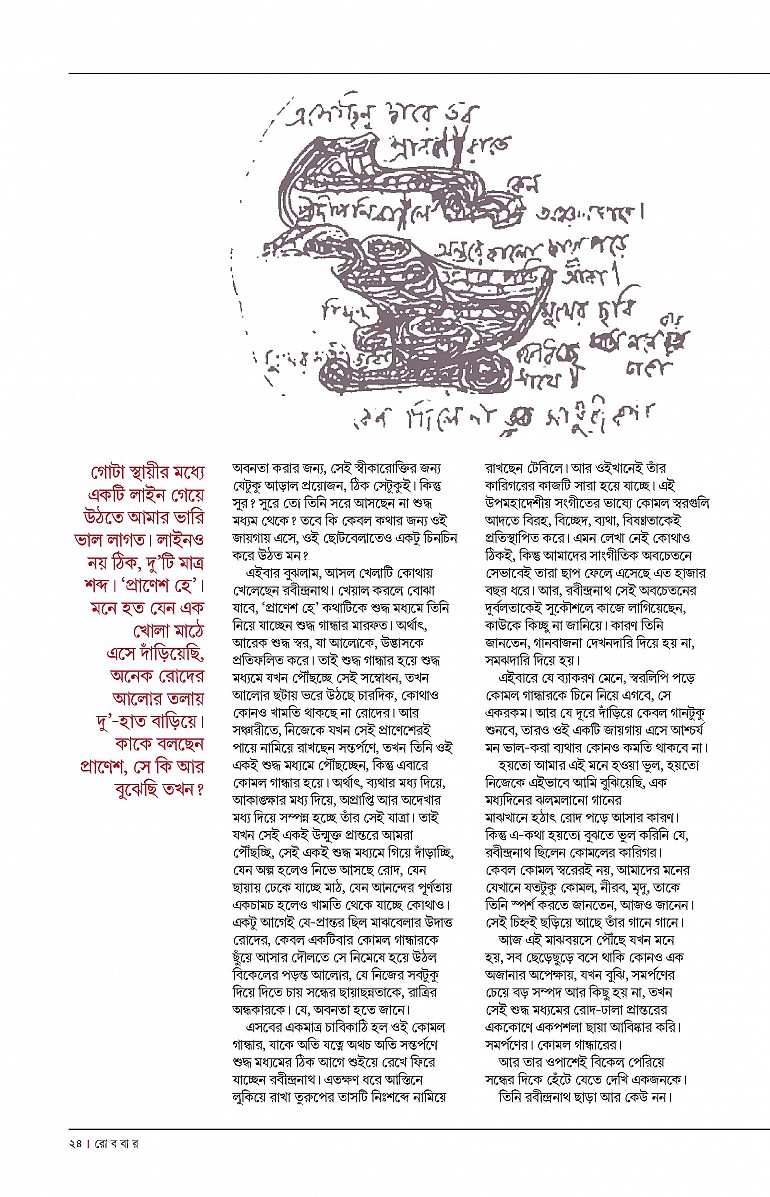 এসেছিনু দ্বারে তব
শ্রাবণ রাতে
কেন
প্রদীপ নিবালে
অন্তরে কালো ছায়া পড়ে
আঁকা।
মুখের ছবি
সাথে
কেন দিলে না
গোটা স্থায়ীর মধ্যে
একটি লাইন গেয়ে
উঠতে আমার ভারি
ভাল লাগত। লাইনও
নয় ঠিক, দু’টি মাত্র
শব্দ। ‘প্রাণেশ হে’।
মনে হত যেন এক
খোলা মাঠে
এসে দাঁড়িয়েছি,
অনেক রোদের
আলোর তলায়
দু’-হাত বাড়িয়ে।
কাকে বলছেন
প্রাণেশ, সে কি আর
বুঝেছি তখন?
অবনতা করার জন্য, সেই স্বীকারোক্তির জন্য
যেটুকু আড়াল প্রয়োজন, ঠিক সেটুকুই। কিন্তু
সুর? সুরে তো তিনি সরে আসছেন না শুদ্ধ
মধ্যম থেকে? তবে কি কেবল কথার জন্য ওই
জায়গায় এসে, ওই ছোটবেলাতেও একটু চিনচিন
করে উঠত মন?
এইবার বুঝলাম, আসল খেলাটি কোথায়
খেলেছেন রবীন্দ্রনাথ। খেয়াল করলে বোঝা
যাবে, ‘প্রাণেশ হে’ কথাটিকে শুদ্ধ মধ্যমে তিনি
নিয়ে যাচ্ছেন শুদ্ধ গান্ধার মারফত। অর্থাৎ,
আরেক শুদ্ধ স্বর, যা আলোকে, উদ্ভাসকে
প্রতিফলিত করে। তাই শুদ্ধ গান্ধার হয়ে শুদ্ধ
মধ্যমে যখন পৌঁছচ্ছে সেই সম্বোধন, তখন
আলোর ছটায় ভরে উঠছে চারদিক, কোথাও
কোনও খামতি থাকছে না রোদের। আর
সঞ্চারীতে, নিজেকে যখন সেই প্রাণেশেরই
পায়ে নামিয়ে রাখছেন সন্তর্পণে, তখন তিনি ওই
একই শুদ্ধ মধ্যমে পৌঁছচ্ছেন, কিন্তু এবারে
কোমল গান্ধার হয়ে। অর্থাৎ, ব্যথার মধ্য দিয়ে,
আকাঙ্ক্ষার মধ্য দিয়ে, অপ্রাপ্তি আর অদেখার
মধ্য দিয়ে সম্পন্ন হচ্ছে তাঁর সেই যাত্রা। তাই
যখন সেই একই উন্মুক্ত প্রান্তরে আমরা
পৌঁছচ্ছি, সেই একই শুদ্ধ মধ্যমে গিয়ে দাঁড়াচ্ছি,
যেন অল্প হলেও নিভে আসছে রোদ, যেন
ছায়ায় ঢেকে যাচ্ছে মাঠ, যেন আনন্দের পূর্ণতায়
একচামচ হলেও খামতি থেকে যাচ্ছে কোথাও।
একটু আগেই যে-প্রান্তর ছিল মাঝবেলার উদাত্ত
রোদের, কেবল একটিবার কোমল গান্ধারকে
ছুঁয়ে আসার দৌলতে সে নিমেষে হয়ে উঠল
বিকেলের পড়ন্ত আলোর, যে নিজের সবটুকু
দিয়ে দিতে চায় সন্ধের ছায়াচ্ছন্নতাকে, রাত্রির
অন্ধকারকে। যে, অবনতা হতে জানে।
এসবের একমাত্র চাবিকাঠি হল ওই কোমল
গান্ধার, যাকে অতি যত্নে অথচ অতি সন্তর্পণে
শুদ্ধ মধ্যমের ঠিক আগে শুইয়ে রেখে ফিরে
যাচ্ছেন রবীন্দ্রনাথ। এতক্ষণ ধরে আস্তিনে
লুকিয়ে রাখা তুরুপের তাসটি নিঃশব্দে নামিয়ে
রাখছেন টেবিলে। আর ওইখানেই তাঁর
কারিগরের কাজটি সারা হয়ে যাচ্ছে। এই
উপমহাদেশীয় সংগীতের ভাষ্যে কোমল স্বরগুলি
আদতে বিরহ, বিচ্ছেদ, ব্যথা, বিষণ্ণতাকেই
প্রতিস্থাপিত করে। এমন লেখা নেই কোথাও
ঠিকই, কিন্তু আমাদের সাংগীতিক অবচেতনে
সেভাবেই তারা ছাপ ফেলে এসেছে এত হাজার
বছর ধরে। আর, রবীন্দ্রনাথ সেই অবচেতনের
দুর্বলতাকেই সুকৌশলে কাজে লাগিয়েছেন,
কাউকে কিচ্ছু না জানিয়ে। কারণ তিনি
জানতেন, গানবাজনা দেখনদারি দিয়ে হয় না,
সমঝদারি দিয়ে হয়।
এইবারে যে ব্যাকরণ মেনে, স্বরলিপি পড়ে
কোমল গান্ধারকে চিনে নিয়ে এগবে, সে
একরকম। আর যে দূরে দাঁড়িয়ে কেবল গানটুকু
শুনবে, তারও ওই একটি জায়গায় এসে আশ্চর্য
মন ভাল-করা ব্যথার কোনও কমতি থাকবে না।
হয়তো আমার এই মনে হওয়া ভুল, হয়তো
নিজেকে এইভাবে আমি বুঝিয়েছি, এক
মধ্যদিনের ঝলমলানো গানের
মাঝখানে হঠাৎ রোদ পড়ে আসার কারণ।
কিন্তু এ-কথা হয়তো বুঝতে ভুল করিনি যে,
রবীন্দ্রনাথ ছিলেন কোমলের কারিগর।
কেবল কোমল স্বরেরই নয়, আমাদের মনের
যেখানে যতটুকু কোমল, নীরব, মৃদু, তাকে
তিনি স্পর্শ করতে জানতেন, আজও জানেন।
সেই চিহ্নই ছড়িয়ে আছে তাঁর গানে গানে।
আজ এই মাঝবয়সে পৌঁছে যখন মনে
হয়, সব ছেড়েছুড়ে বসে থাকি কোনও এক
অজানার অপেক্ষায়, যখন বুঝি, সমর্পণের
চেয়ে বড় সম্পদ আর কিছু হয় না, তখন
সেই শুদ্ধ মধ্যমের রোদ-ঢালা প্রান্তরের
এককোণে একপশলা ছায়া আবিষ্কার করি।
সমর্পণের। কোমল গান্ধারের।
আর তার ওপাশেই বিকেল পেরিয়ে
সন্ধের দিকে হেঁটে যেতে দেখি একজনকে।
তিনি রবীন্দ্রনাথ ছাড়া আর কেউ নন।
২৪ | রো ব বা র